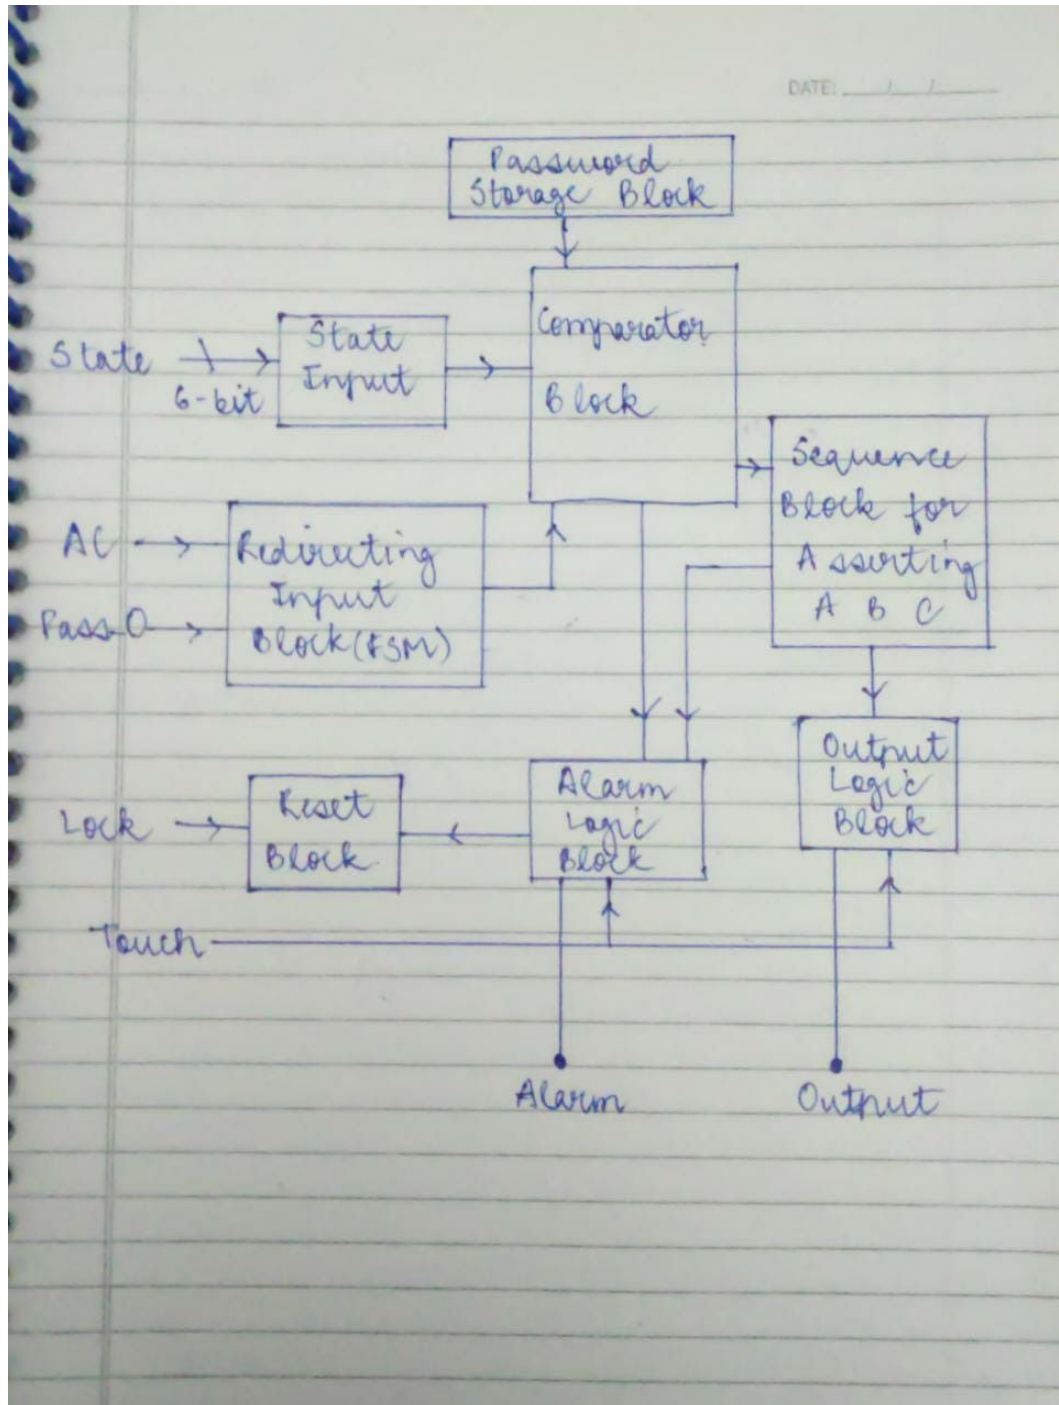 DATE: __/__/__
Password
Storage Block
State
6-bit
State
Input
Comparator
Block
Sequence
Block for
Asserting
A B C
AC
Pass-O
Redirecting
Input
Block(FSM)
Lock
Reset
Block
Alarm
Logic
Block
Output
Logic
Block
Touch
Alarm
Output